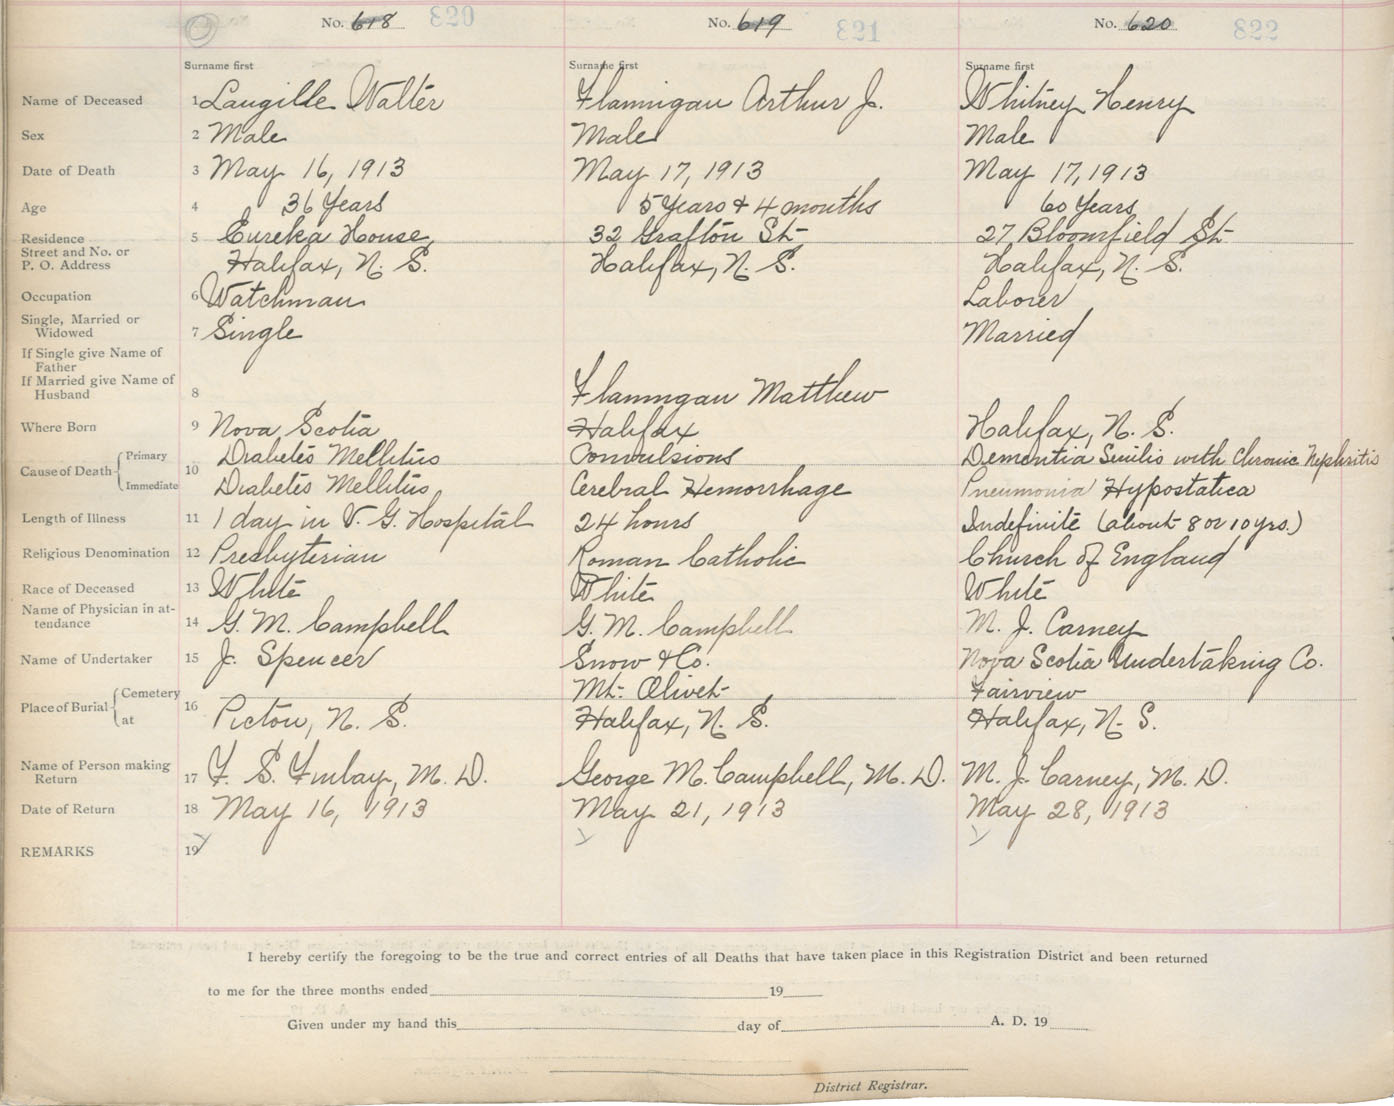 No. 618 820 No. 619 821 No. 620 822
Surname first Surname first Surname first
Name of Deceased 1 Langille Walter Flannigan Arthur J. Whitney Henry
Sex 2 Male Male Male
Date of Death 3 May 16, 1913 May 17, 1913 May 17, 1913
Age 4 36 Years 5 Years & 4 months 60 Years
Residence 5 Eureka House, 32 Grafton St- 27 Bloomfield St-
Street and No. or
P. O. Address Halifax, N. S. Halifax, N. S. Halifax, N. S.
Occupation 6 Watchman Laborer
Single, Married or
Widowed 7 Single Married
If Single give Name of
Father
If Married give Name of
Husband 8 Flannigan Matthew
Where Born 9 Nova Scotia Halifax Halifax, N. S.
Cause of Death Primary 10 Diabetes Mellitus Convulsions Dementia Senilis with Chronic Nephritis
Immediate Diabetes Mellitus Cerebral Hemorrhage Pneumonia Hypostatica
Length of Illness 11 1 day in V. G. Hospital 24 hours Indefinite (about 8 or 10 yrs.)
Religious Denomination 12 Presbyterian Roman Catholic Church of England
Race of Deceased 13 White White White
Name of Physician in at-
tendance 14 G. M. Campbell G. M. Campbell M. J. Carney
Name of Undertaker 15 J. Spencer Snow & Co. Nova Scotia Undertaking Co.
Place of Burial Cemetery 16 Mt. Olivet Fairview
at Pictou, N. S. Halifax, N. S. Halifax, N. S.
Name of Person making
Return 17 F. S. Finlay, M. D. George M. Campbell, M. D. M. J. Carney, M. D.
Date of Return 18 May 16, 1913 May 21, 1913 May 28, 1913
REMARKS 19
I hereby certify the foregoing to be the true and correct entries of all Deaths that have taken place in this Registration District and been returned
to me for the three months ended 19
Given under my hand this day of A. D. 19
District Registrar.